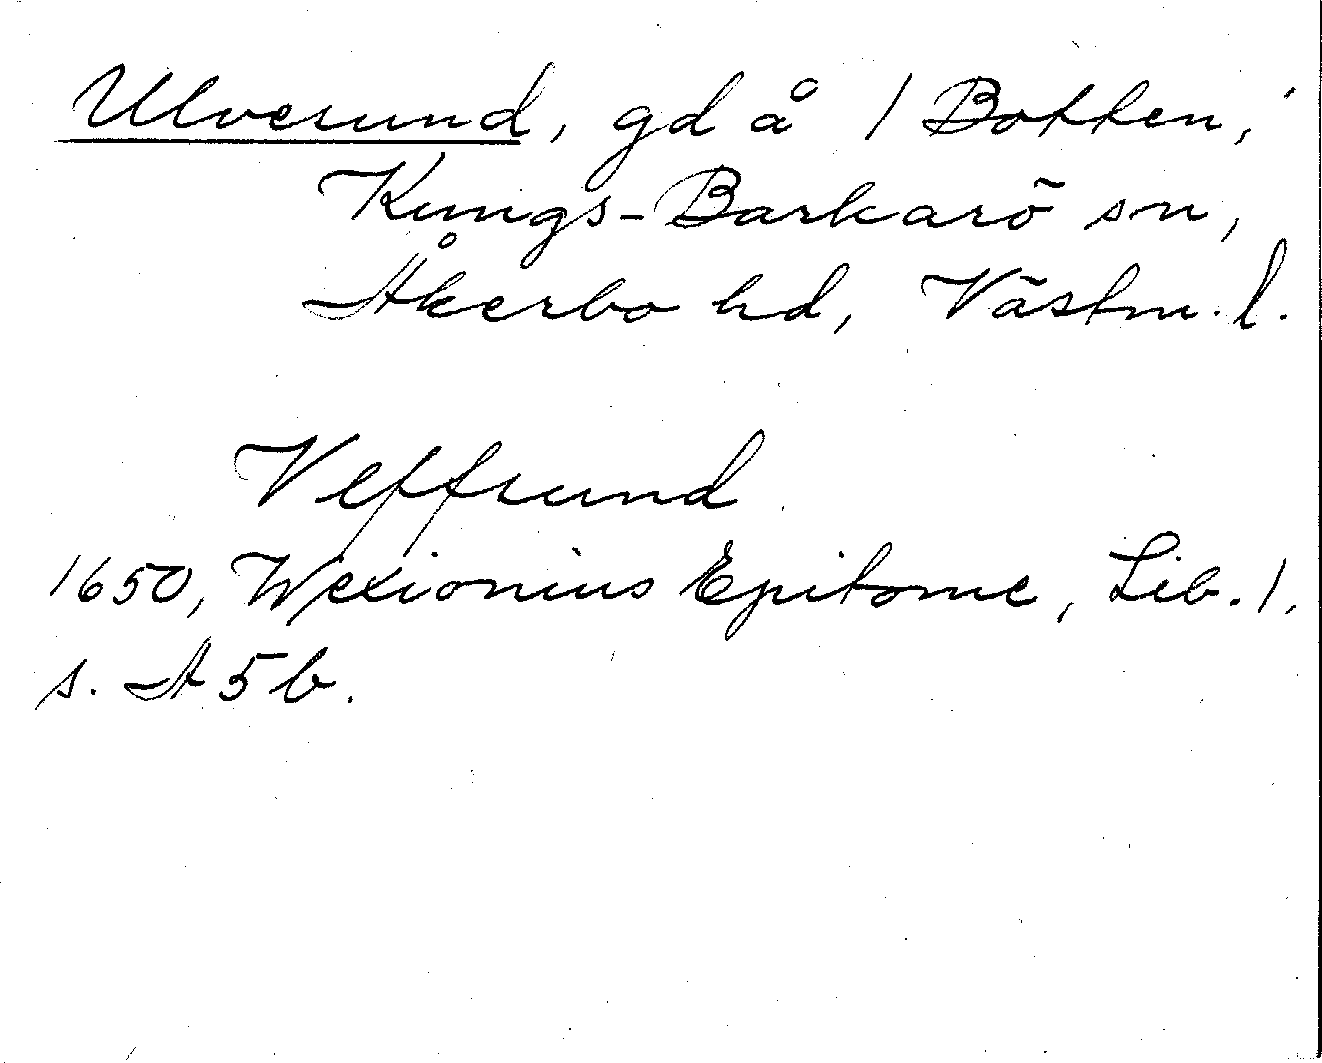 Ulverund, gd å 1 Botten,
Kungs-Barkarö sn,
Åkerbo hd, Västm. l.
Vlffrund
1650, Wexionius Epitome, Lib. 1,
s. A 5 b.